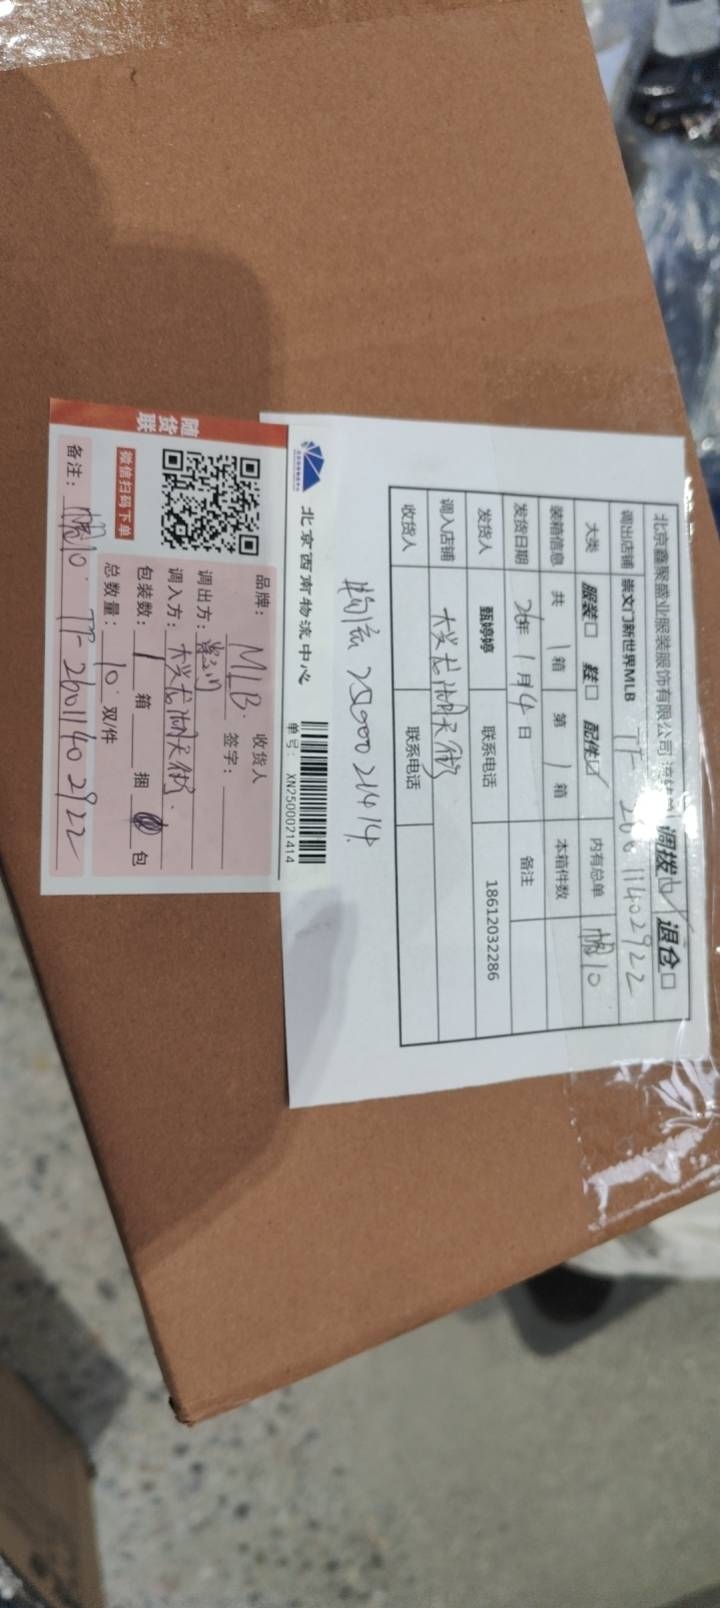 北京鑫聚盛业服装服饰有限公司 调拨☑ 退仓□
调出店铺 崇文门新世界MLB TF 2601402922
大类 服装□ 鞋□ 配件☑ 内有总单 帽10
装箱信息 共 1 箱 第 1 箱 本箱件数
发货日期 26年 1月4日 备注
发货人 甄婷婷 联系电话 18612032286
调入店铺 大兴龙湖天街
收货人 联系电话
物流 2500021414
北京西南物流中心
单号: XN2500021414
随货联
微信扫码下单
品牌: MLB. 收货人
调出方: 签字:
调入方: 大兴龙湖天街.
包装数: 1 箱 捆 包
总数量: 10 双件
备注: 帽10. TF-2601402922